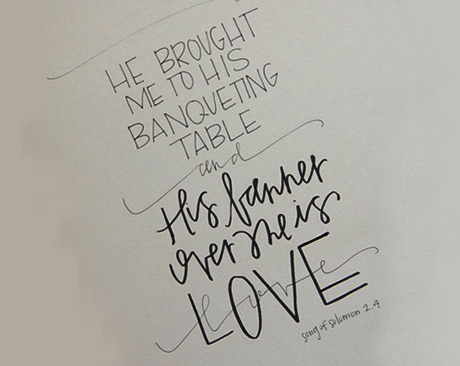 HE BROUGHT
ME TO HIS
BANQUETING
TABLE
and
His banner
over me is
love
LOVE
song of solomon 2.4